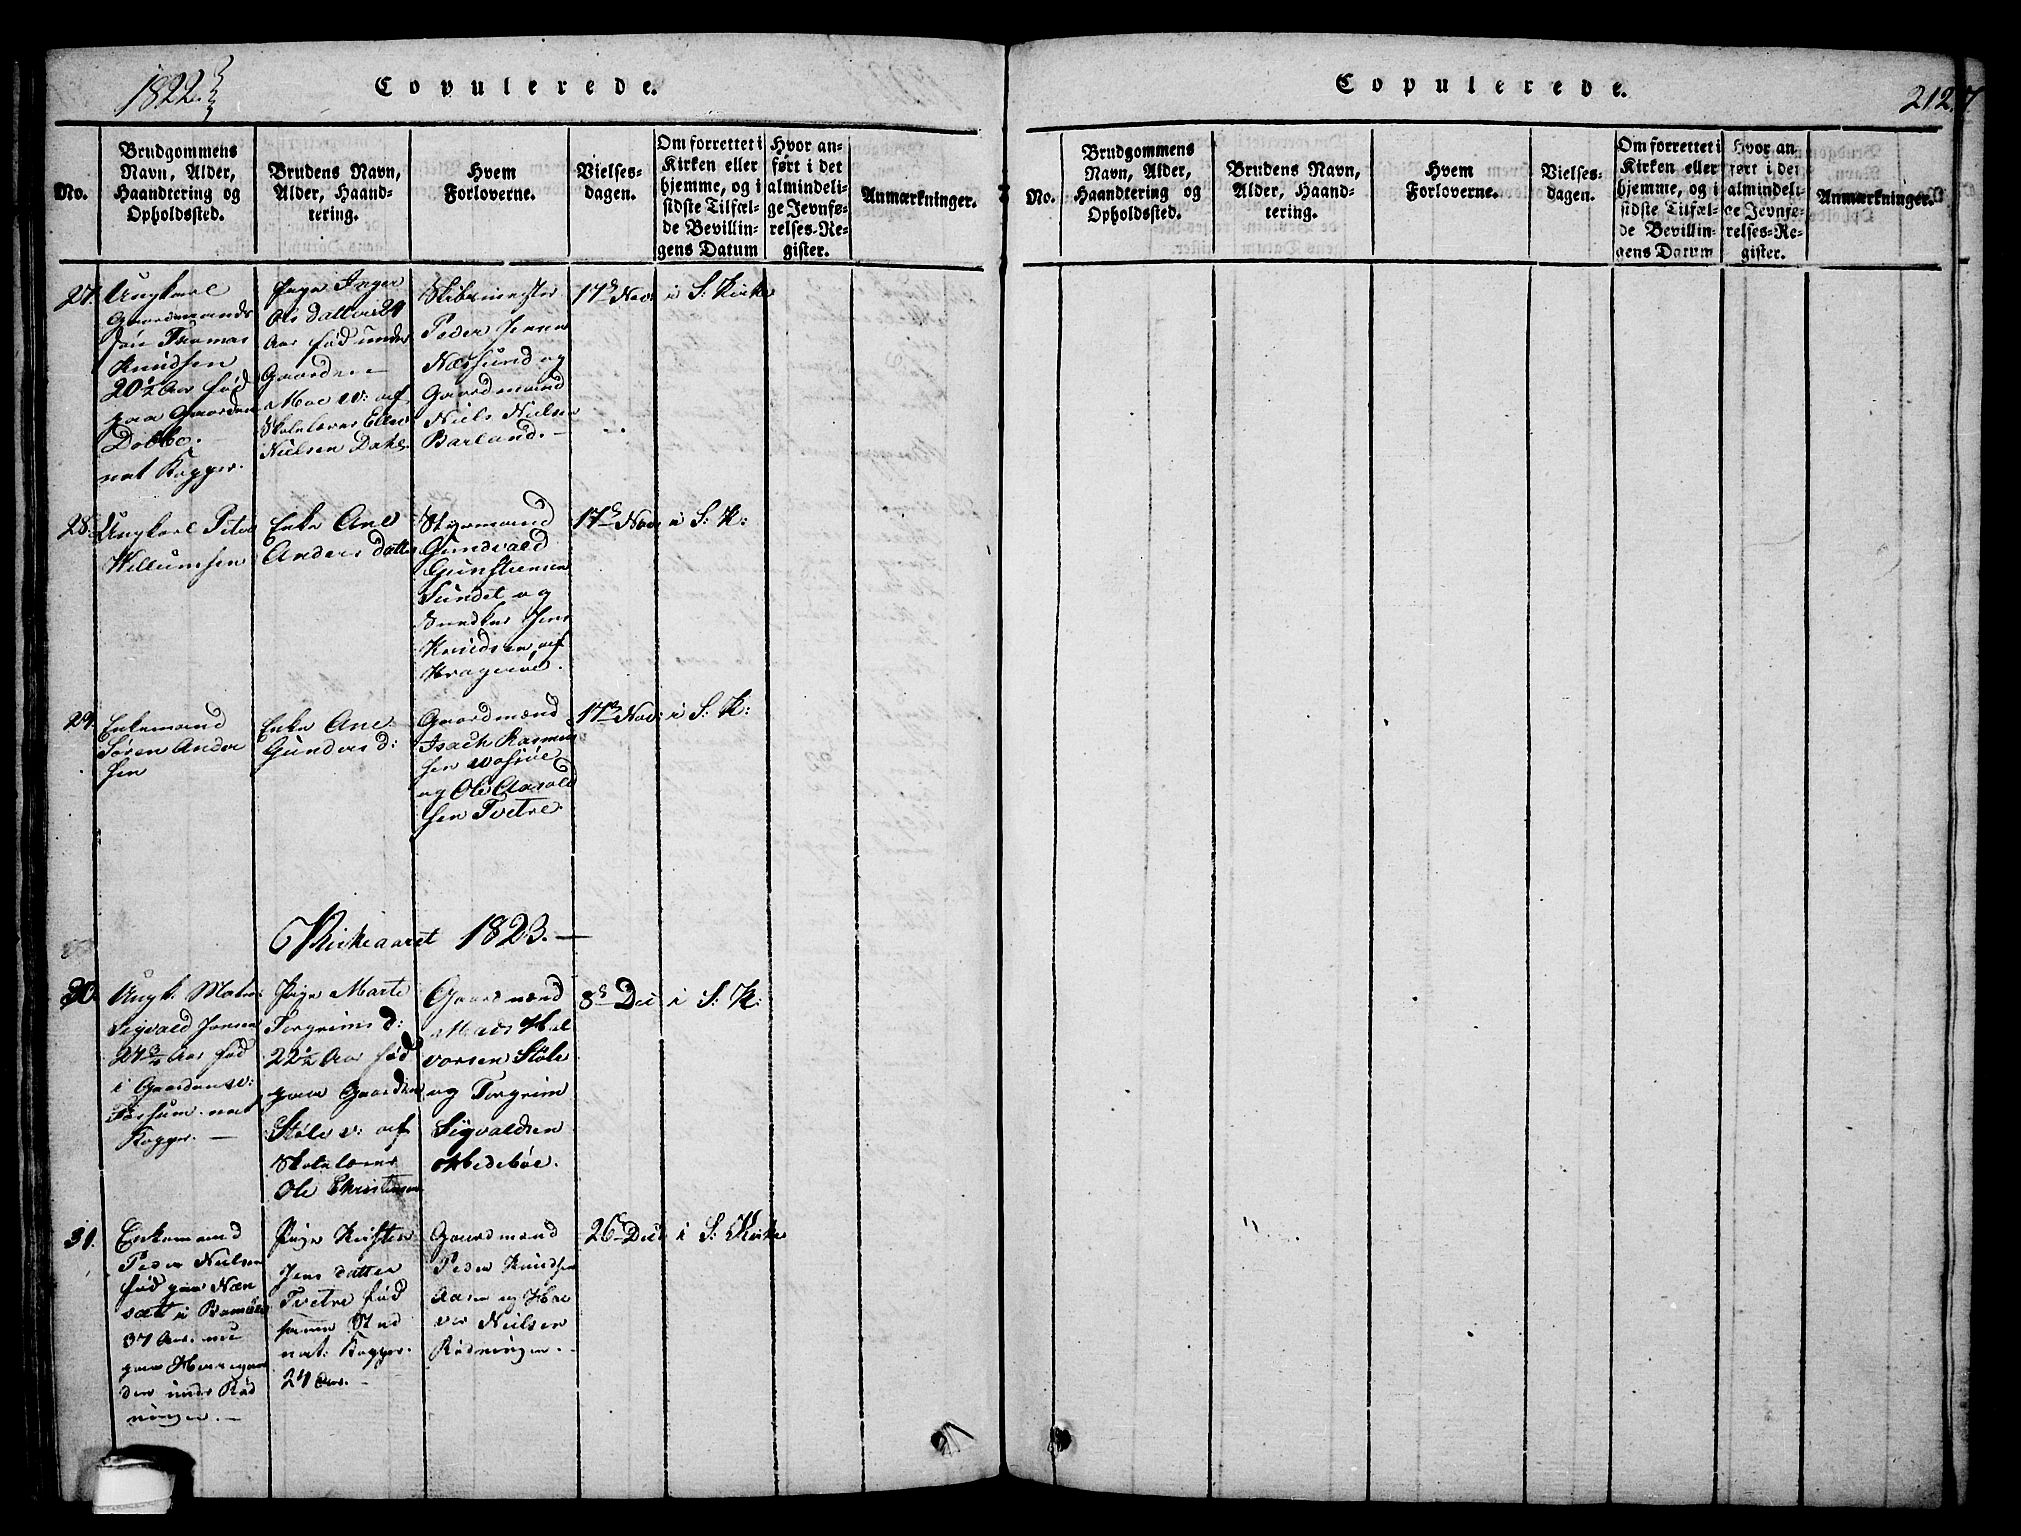 1822.
Copulerede.
No.
Brudgommens
Navn, Alder,
Haandtering og
Opholdssted.
Brudens Navn,
Alder, Haand-
tering.
Hvem
Forloverne.
Vielses-
dagen.
Om forrettet i
Kirken eller
hjemme, og i
sidste Tilfæl-
de Bevillin-
gens Datum
Hvor an-
ført i det
almindeli-
ge Jevnfø-
relses-Re-
gister.
Anmærkninger.
27.
Ungkarl
Gaardmands
søn Thomas
Knudsen
20½ Aar fød
paa Gaarden
Dobbe.
nat Kopper.
Pige Inger
Ols datter 29
Aar fød under
Gaarden
Moe v: af
Skolelærer Ellev
Nielsen Dahl
Skibsmester
Peder
Næssund og
Gaardmand
Niels Nielsen
Barland. -
17de Nov:
i S: Kirke
28.
Ungkarl Peter
Willumsen
Enke Ane
Anders datter
Styrmand
Gundvald
Gunstensen
Sundet og
Jens
Knudsen af
Kragerøe.
17de Nov:
i S: K:
29.
Enkemand
Søren Ander
sen
Enke Ane
Gunders d:
Gaardmænd
Isach Rasmus
sen
og Ole Aasold
sen Tvetre.
17de Nov:
i S: K:
Kirkeaaret 1823. -
30.
Ungk.
Sigvald Jensen
24¾ Aar fød
i Gaarden
Fossum. nat
Kopper. -
Pige Marte
Torgrims d:
22½ Aar fød
paa Gaarden
Støle v: af
Skolelærer
Ole Christensen
Gaardmænd
Mads Hal
vorsen Støle
og Torgrim
Sigvaldsen
8de Dec:
i S: K:
31.
Enkemand
Peder Nielsen
fød paa
i Bamble
37 Aar. nu
paa
den under Rød
ningen. -
Pige Kirsten
Jens datter
Tvetre fød
samme Sted
nat: Kopper.
24 Aar. -
Gaardmænd
Peder Knudsen
Aasen og Hal
vor Nielsen
Rødningen. -
26de Dec:
i S: Kirke
Copulerede.
212.
No.
Brudgommens
Navn, Alder,
Haandtering og
Opholdssted.
Brudens Navn,
Alder, Haand-
tering.
Hvem
Forloverne.
Vielses-
dagen.
Om forrettet i
Kirken eller
hjemme, og i
sidste Tilfæl-
de Bevillin-
gens Datum
Hvor an
ført i det
almindeli-
ge Jevnfø-
relses-Re-
gister.
Anmærkninger.